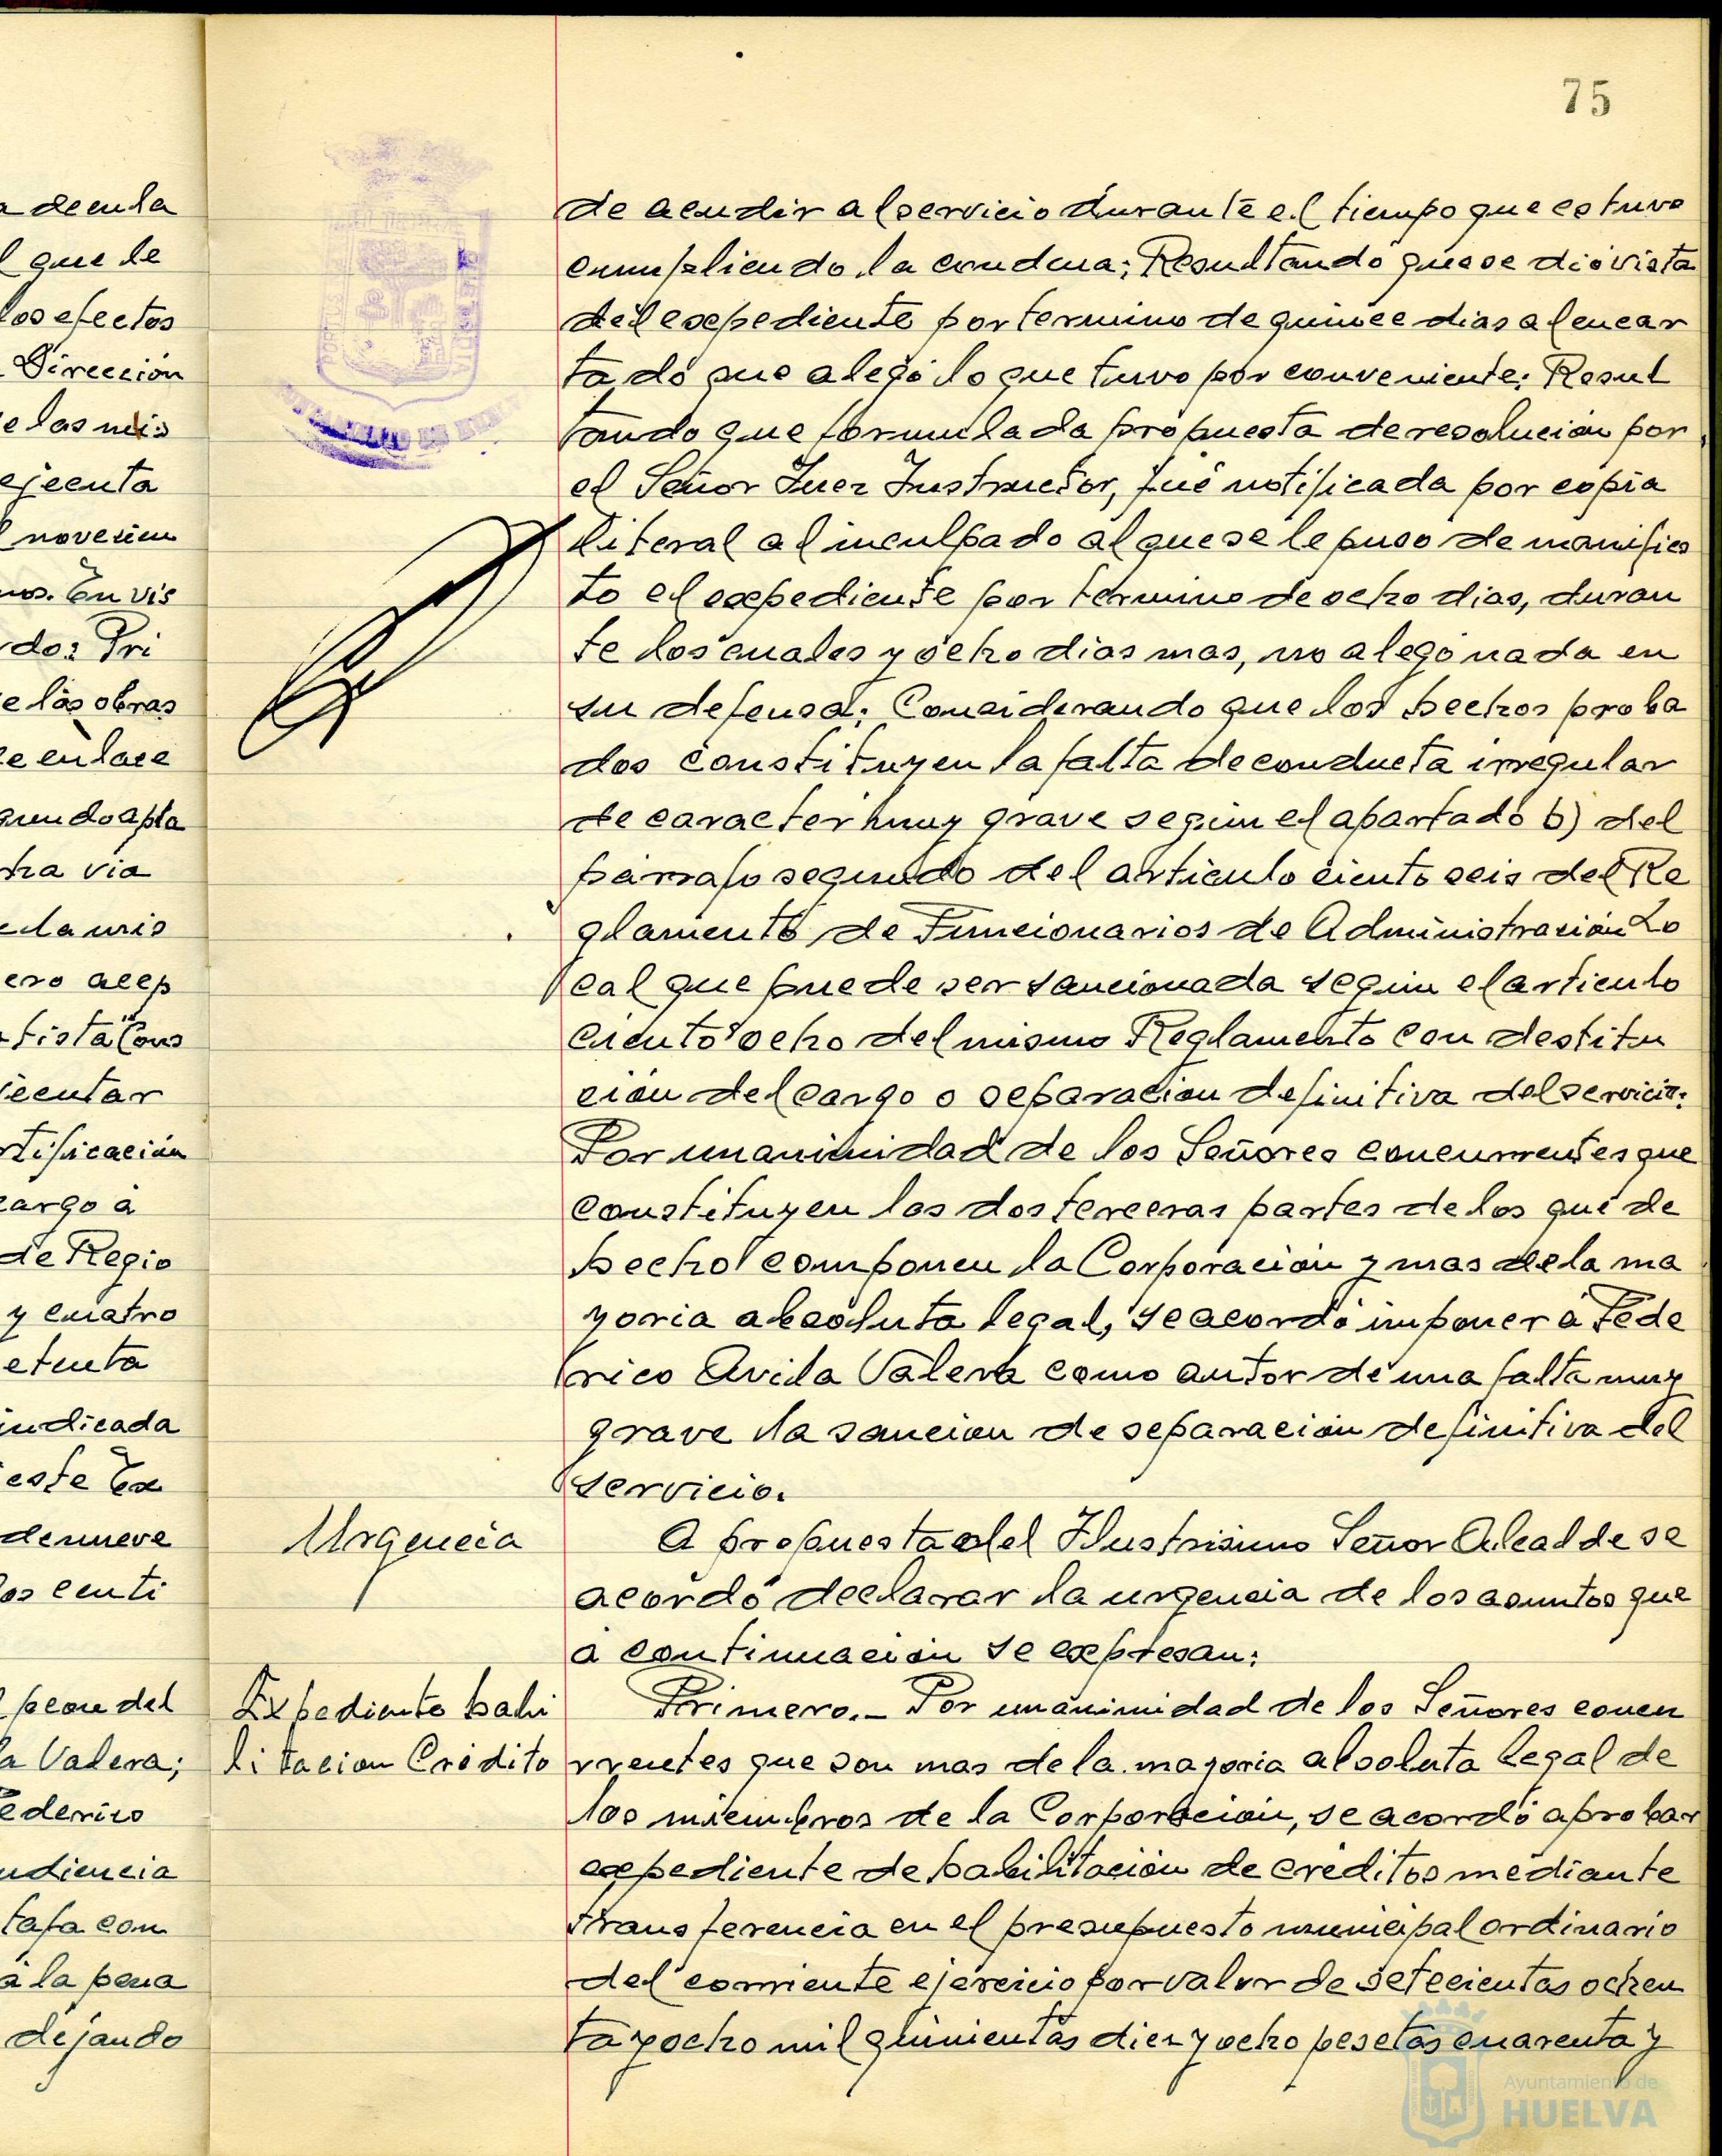 75
a deenla
l que le
los efectos
Dirección
e las mis
ejecuta
l novecien
nos. En vis
rdo: Pri
e las obras
e enlace
gundo apla
tra via
e la mis
ero acep
tista "Cons
jecutar
rtificación
cargo a
de Regio
y cuatro
etenta
indicada
este Ex
de nueve
os centi
peon del
a Valera;
Federico
udiencia
tafa con
a la pena
dejando
de acudir al servicio durante el tiempo que estuvo
cumpliendo la condena; Resultando que se dió vista
del expediente por termino de quince dias al encar
tado que alegó lo que tuvo por conveniente; Resul
tando que formulada propuesta de resolución por
el Señor Juez Instructor, fué notificada por copia
literal al inculpado al que se le puso de manifies
to el expediente por termino de ocho dias, duran
te los cuales y ocho dias mas, no alegó nada en
su defensa; Considerando que los hechos proba
dos constituyen la falta de conducta irregular
de caracter muy grave según el apartado b) del
párrafo segundo del articulo ciento seis del Re
glamento de Funcionarios de Administración Lo
cal que puede ser sancionada según el articulo
ciento ocho del mismo Reglamento con destitu
ción del cargo o separación definitiva del servicio;
Por unanimidad de los Señores concurrentes que
constituyen las dos terceras partes de los que de
hecho componen la Corporación y mas de la ma
yoria absoluta legal, se acordó imponer a Fede
rico Avila Valera como autor de una falta muy
grave la sanción de separación definitiva del
servicio.
Urgencia
A propuesta del Ilustrisimo Señor Alcalde se
acordó declarar la urgencia de los asuntos que
a continuación se expresan:
Expediente habi
litacion Crédito
Primero.- Por unanimidad de los Señores concu
rrentes que son mas de la mayoria absoluta legal de
los miembros de la Corporación, se acordó aprobar
expediente de habilitación de créditos mediante
transferencia en el presupuesto municipal ordinario
del corriente ejercicio por valor de setecientas ochen
ta y ocho mil quinientas diez y ocho pesetas cuarenta y
Ayuntamiento de
HUELVA